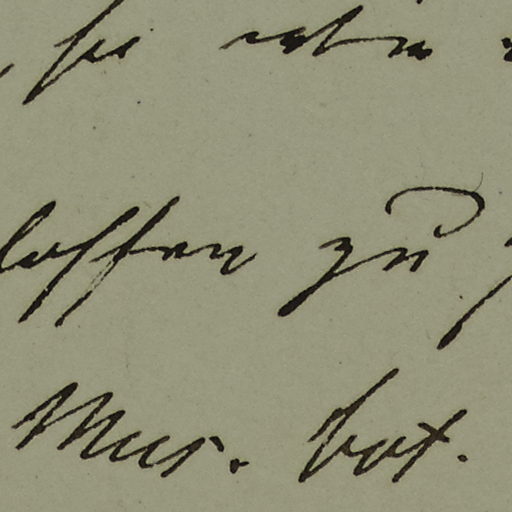 sie
lassen zu
Mus. bot.